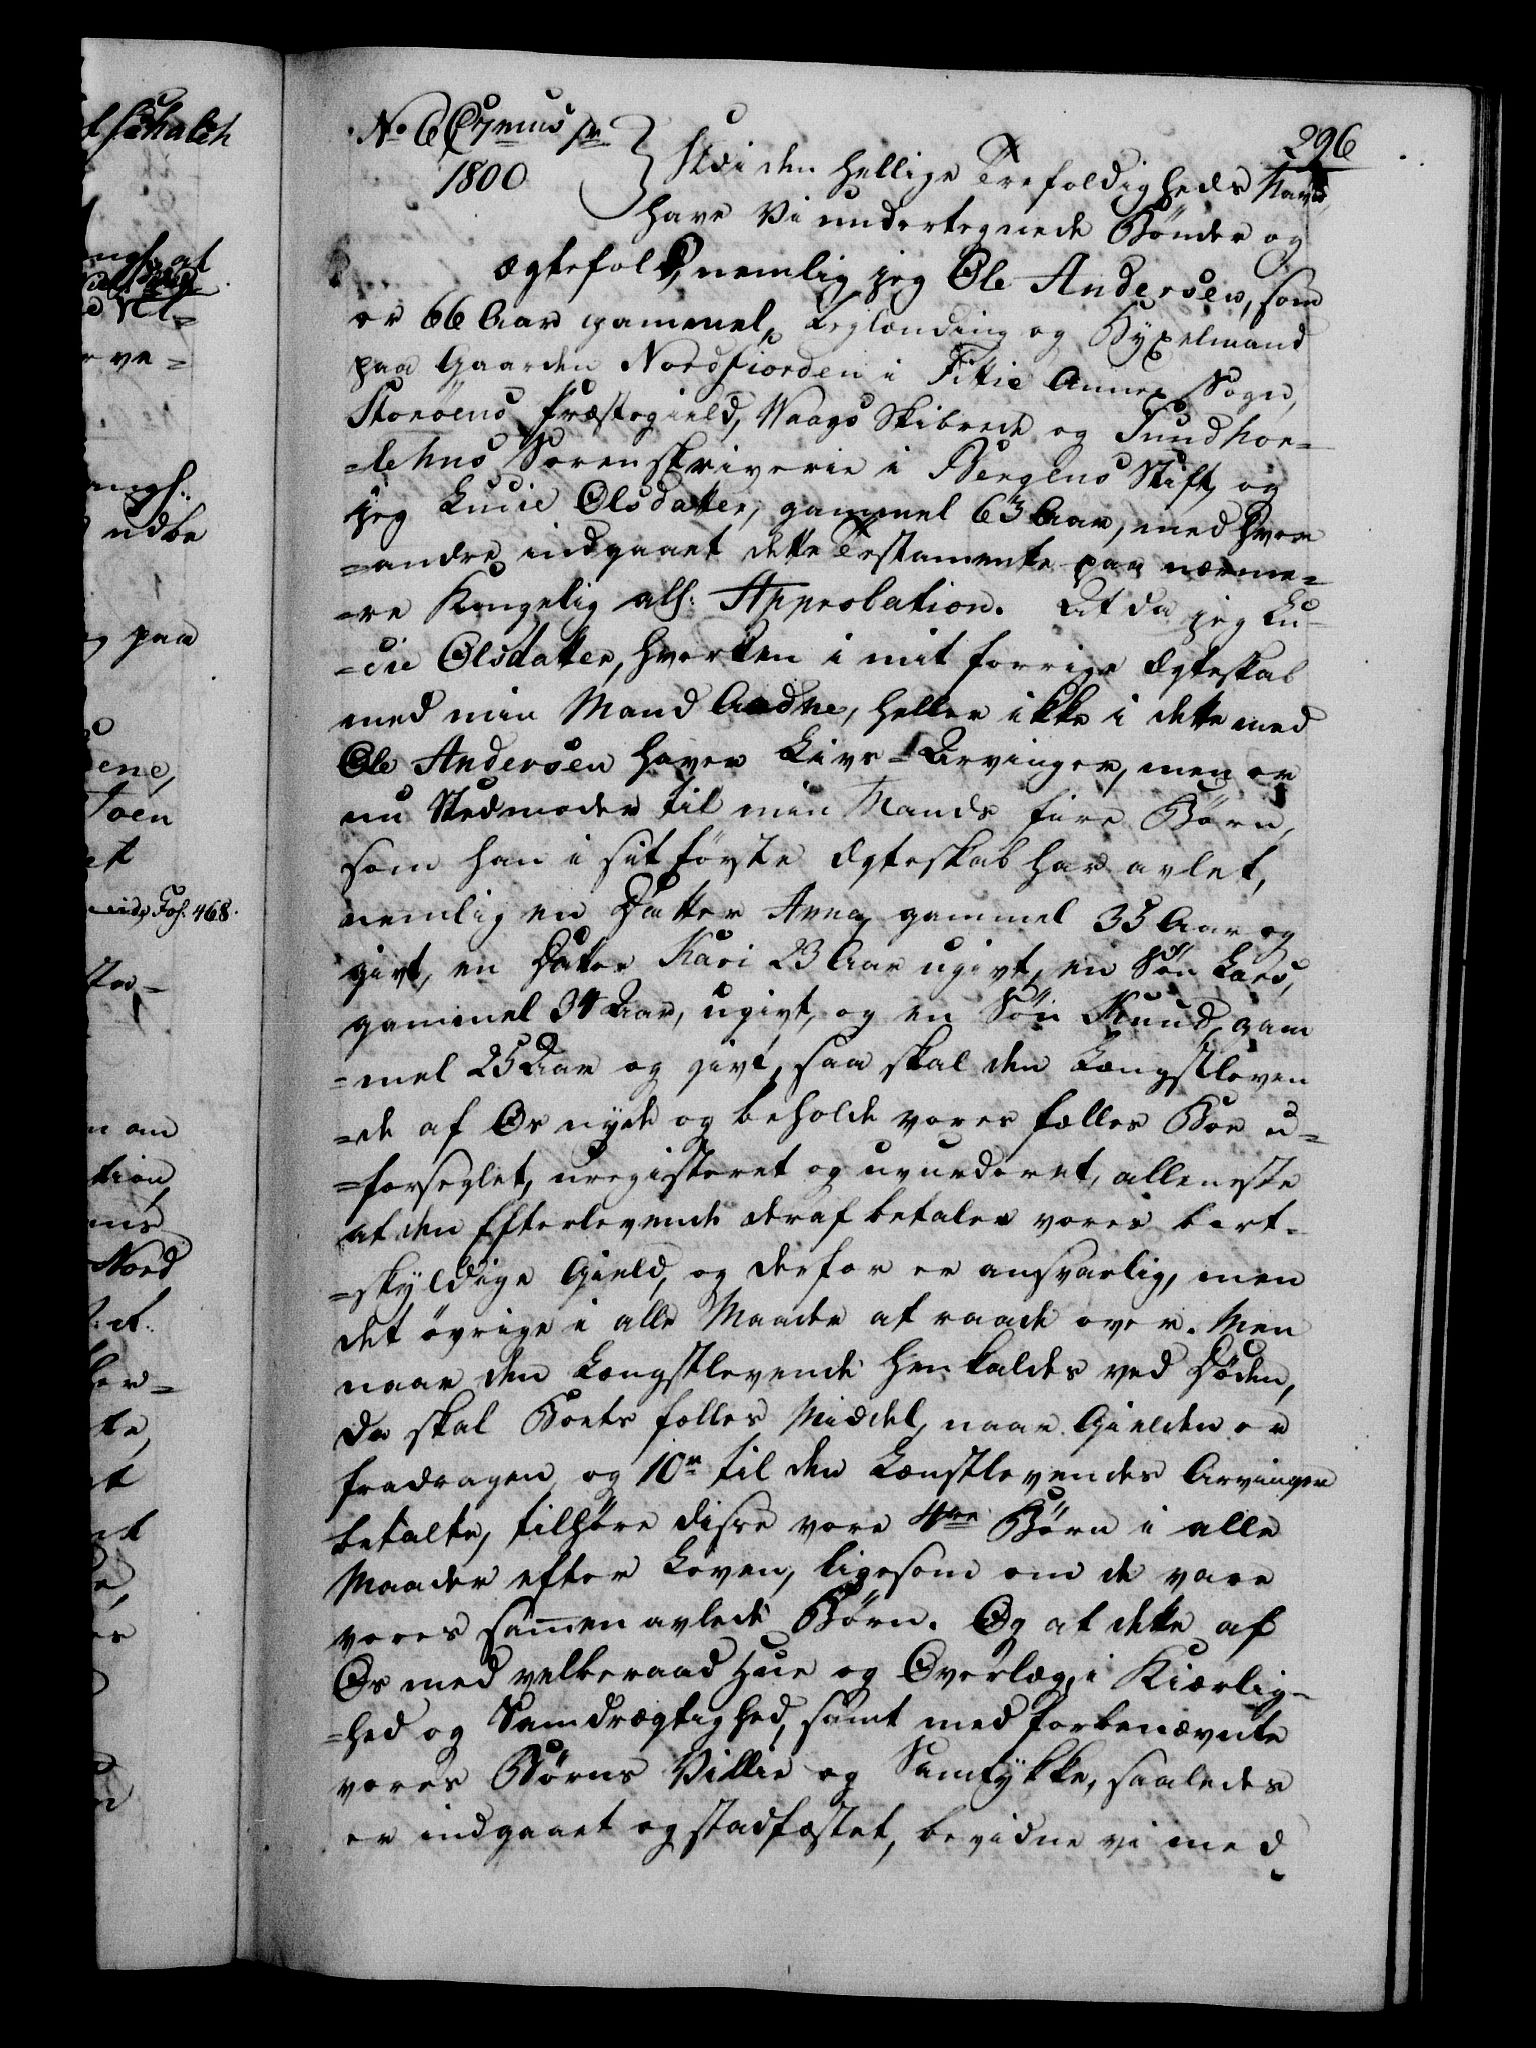 296
No 6
1800
I den hellige Trefoldigheds Navn,
have Vi undertegnede Bønder og
ægtefolk, nemlig jeg Ole Andersen, som
er 66 Aar gammel, Leglænding og Bÿxelmand
paa Gaarden Nordfiorden i Fitie Annex Sogn,
Storöens Præstegield, Waags Skibrede og Sundhor-
=lehns Sorenskriverie i Bergens Stift, og
jeg Lucie Olsdatter, gammel 63 Aar, med hver
=andre indgaaet dette Testamente paa nærme-
=re Kongelig alh: Approbation. At da jeg Lu-
=cie Olsdatter, hverken i mit forrige Ægteskab
med min Mand Aadne, heller ikke i dette med
Ole Andersen haver Livs-Arvinger, men er
nu Stedmoder til min Mands fire Börn,
som han i sit første Ægteskab har avlet,
nemlig en Datter Anna, gammel 35 Aar og
givt, en Datter Kari 23 Aar ugivt, en Sön Lars,
gammel 34 Aar, ugivt, og en Sön Knud, gam
=mel 25 Aar og givt, saa skal den Længstleven
=de af Os nyde og beholde vores fælles Boe u-
=forseglet, uregisteret og uvurderet, alleneste
at den Efterlevende deraf betaler vores bort-
=skyldige Gield, og derfor er ansvarlig, men
det övrige i alle Maader at raade over. Men
naar den Længstlevende henkaldes ved Döden,
da skal Boets fælles Middel, naar Gielden er
fradragen, og 10r til den Længstlevendes Arvinger
betalte, tilhøre disse vore 4re Börn i alle
Maader efter Loven, ligesom om de vare
vores sammen avlede Börn. Og at dette af
Os med velberaad Hue og Overlæg, i Kiærlig-
=hed og Samdrægtighed, samt med forbenævnte
vores Börns Villie og Samtÿkke, saaledes
er indgaaet og stadfæstet, bevidne vi med